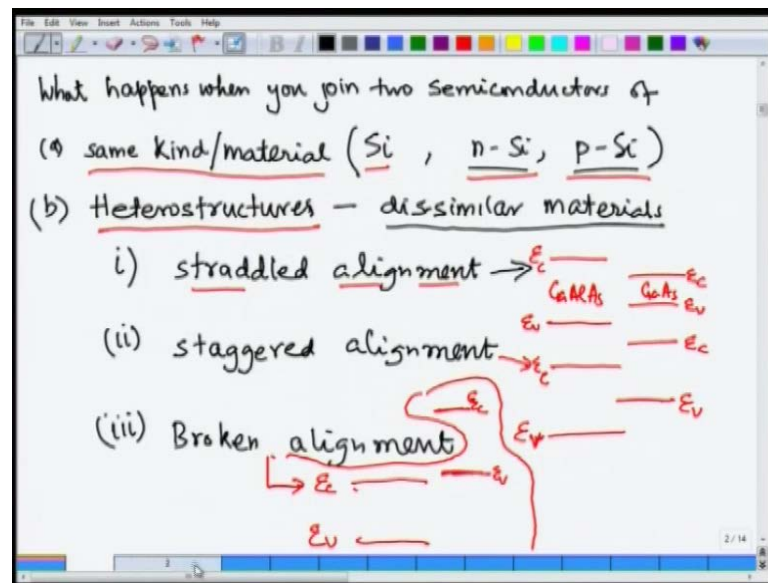 File Edit View Insert Actions Tools Help
B I
What happens when you join two semiconductors of
(a) same kind/material (Si , n-Si, p-Si)
(b) Heterostructures – dissimilar materials
i) straddled alignment → Ec Ec
GaAlAs GaAs Ev
Ev
(ii) staggered alignment → Ec Ec
Ev
Ev
(iii) Broken alignment Ec
Ec Ev
Ev
2/14
3